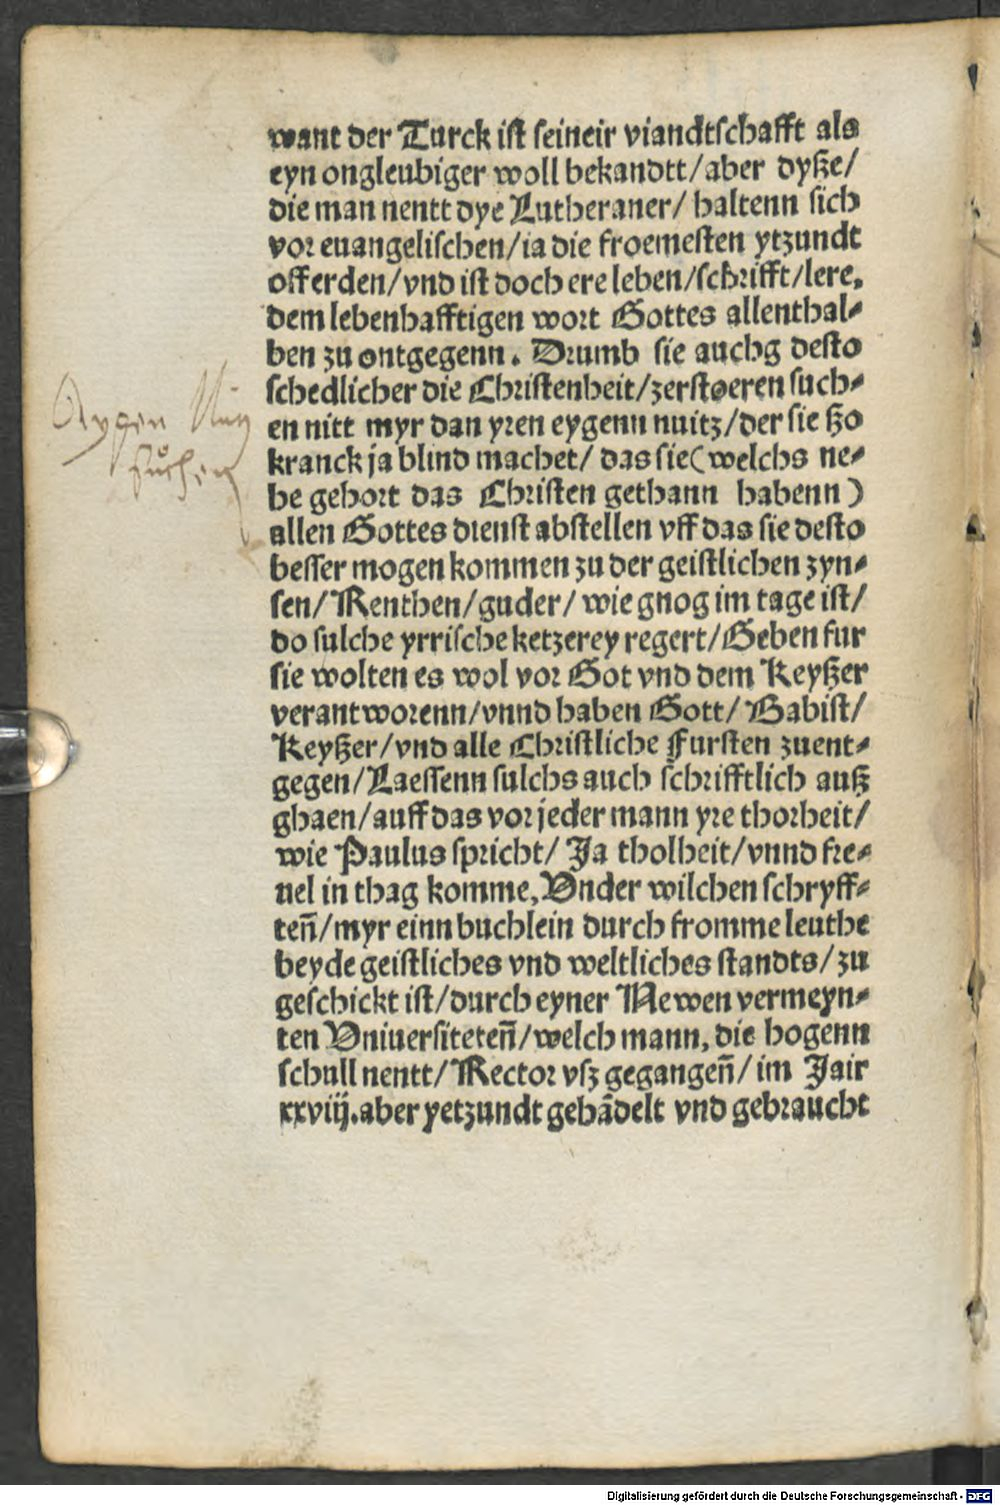 want der Turck ist seineir viandtschafft als
eyn ongleubiger woll bekandtt/aber dyße/
die man nentt dye Lutheraner/ haltenn sich
vor euangelischen/ia die froemesten ytzundt
off erden/vnd ist doch ere leben/schrifft/lere,
dem lebenhafftigen wort Gottes allenthal⸗
ben zu ontgegenn. Drumb sie auchg desto
schedlicher die Christenheit/zerstoeren such⸗
en nitt myr dan yren eygenn nuitz/der sie ßo
kranck ja blind machet/ das sie(welchs ne⸗
he gehort das Christen gethann habenn)
allen Gottes dienst abstellen vff das sie desto
besser mogen kommen zu der geistlichen zyn⸗
sen/Renthen/guder/ wie gnog im tage ist/
do sulche yrrische ketzerey regert/Geben fur
sie wolten es wol vor Got vnd dem Keyßer
verantworenn/vnnd haben Gott/ Babist/
Keyßer/vnd alle Christliche Fursten zuent⸗
gegen/Laessenn sulchs auch schrifftlich auß
ghaen/auff das vor jeder mann yre thorheit/
wie Paulus spricht/ Ja tholheit/vnnd fre⸗
uel in thag komme, Vnder wilchen schryff⸗
ten̄/myr einn buchlein durch fromme leuthe
beyde geistliches vnd weltliches standts/ zu
geschickt ist/durch eyner Newen vermeyn⸗
ten Vniuersiteten̄/welch mann, die hogenn
schull nentt/Rector vsz gegangen̄/im Jair
xxviij.aber yetzundt gehādelt vnd gebraucht
Aygen Nuz
suchen
Digitalisierung gefördert durch die Deutsche Forschungsgemeinschaft - DFG